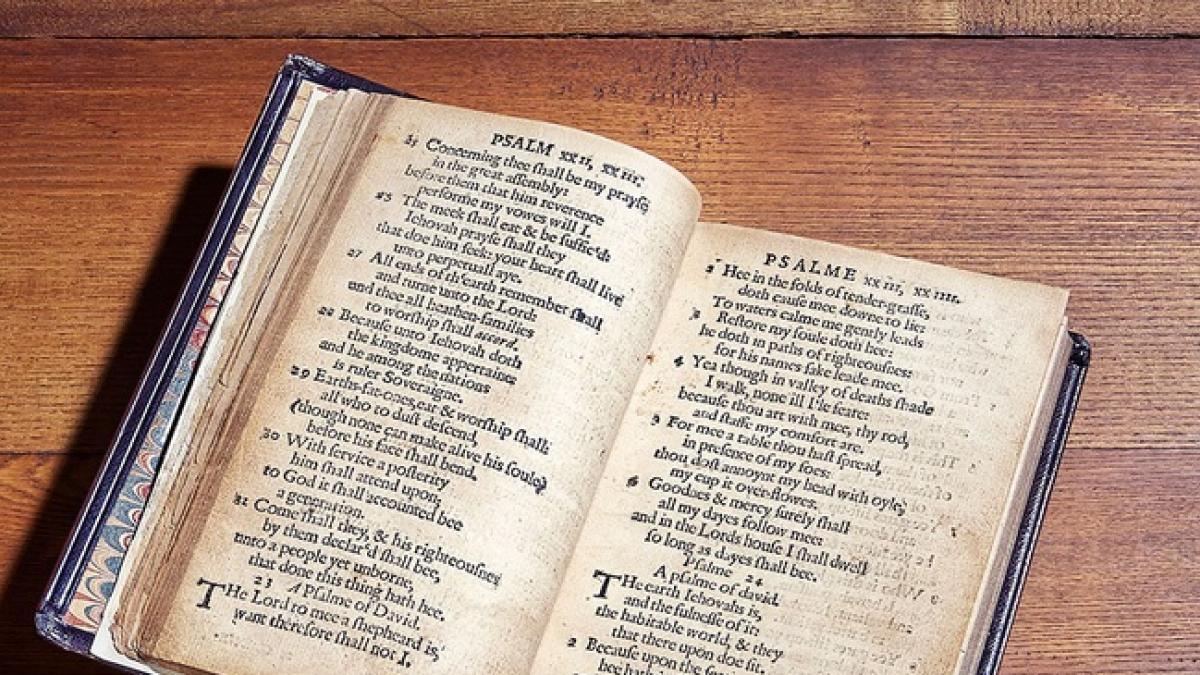 PSALM xxii, xxiii.
25 Concerning thee shall be my prayse
in the great assembly:
before them that him reverence
performe my vowes will I.
26 The meek shall eat & be suffic'd:
Iehovah prayse shall they
that doe him seek: your heart shall live
unto perpetuall aye.
27 All ends of th'earth remember shall
and turne unto the Lord:
and thee all heathen-families
to worship shall accord.
28 Because unto Iehovah doth
the kingdome appertaine:
and he among the nations
is ruler Soveraigne.
29 Earths-fat-ones, eat & worship shall:
all who to dust descend,
(though none can make alive his soule)
before his face shall bend.
30 With service a posterity
him shall attend upon;
to God it shall accounted bee
a generation.
31 Come shall they, & his righteousnes
by them declar'd shall bee,
unto a people yet unborne,
that done this thing hath hee.
23 A Psalme of David.
THe Lord to mee a shepheard is,
want therefore shall not I,
PSALME xxiii, xxiiii.
2 Hee in the folds of tender-grasse,
doth cause mee downe to lie:
To waters calme me gently leads
3 Restore my soule doth hee:
he doth in paths of righteousnes:
for his names sake leade mee.
4 Yea though in valley of deaths shade
I walk, none ill I'le feare:
because thou art with mee, thy rod,
and staffe my comfort are.
5 For mee a table thou hast spread,
in presence of my foes:
thou dost annoynt my head with oyle,
my cup it over-flowes.
6 Goodnes & mercy surely shall
all my dayes follow mee:
and in the Lords house I shall dwell
so long as dayes shall bee.
Psalme 24
A psalme of david.
THe earth Iehovahs is,
and the fulnesse of it:
the habitable world, & they
that there upon doe sit.
2 Because upon the
hee hath